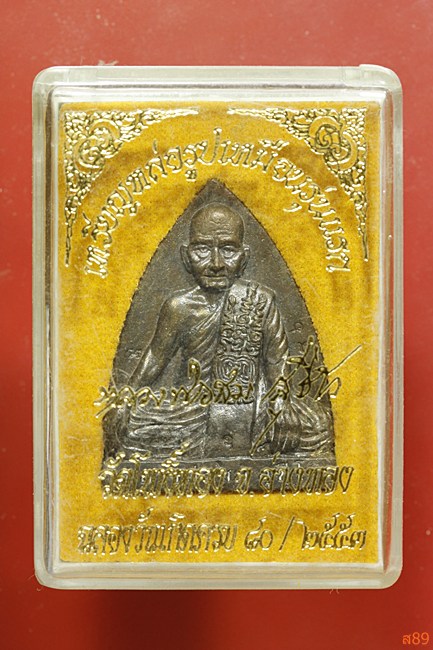 เหรียญหล่อรูปเหมือนรุ่นแรก
หลวงพ่อสม
วัดโพธิ์ทอง จ.อ่างทอง
ฉลองวันเกิดครบ ๘๐/๒๕๕๓
ส89